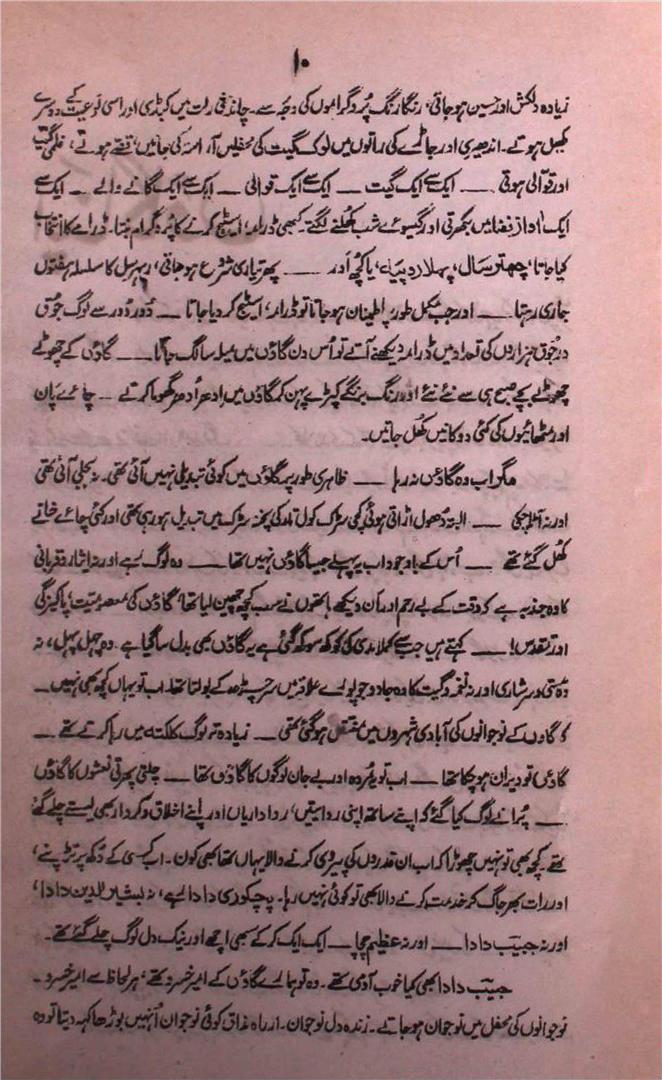 ۱۰
زیادہ دلکش اور حسین ہو جاتی، رنگا رنگ پروگراموں کی وجہ سے۔ چاندنی رات میں کبڈی اور اسی نوعیت کے دوسرے
کھیل ہوتے۔ اندھیری اور جاڑے کی راتوں میں لوک گیت کی محفلیں آراستہ کی جاتیں، قصّے ہوتے، فلمی گیت
اور قوّالی ہوتی ـــ ایک سے ایک گیت ـــ ایک سے ایک قوالی ـــ ایک سے ایک گانے والے ـــ ایک سے
ایک آواز فضا میں بکھرتی اور گیسوئے شب کھلنے لگتے۔ کبھی ڈرامہ اسٹیج کرنے کا پروگرام بنتا۔ ڈرامے کا انتخاب
کیا جاتا، چھتر سال، پہلا روپیہ، یا کچھ اور ـــ پھر تیاری شروع ہو جاتی، ریہرسل کا سلسلہ ہفتوں
جاری رہتا ـــ اور جب مکمل طور پر اطمینان ہو جاتا تو ڈرامہ اسٹیج کر دیا جاتا ـــ دُور دُور سے لوگ جوق
در جوق ہزاروں کی تعداد میں ڈرامہ دیکھنے آتے تو اُس دن گاؤں میں میلہ سا لگ جاتا ـــ گاؤں کے چھوٹے
چھوٹے بچے صبح ہی سے نئے نئے اور رنگ برنگے کپڑے پہن کر گاؤں میں اِدھر اُدھر گھوما کرتے ـــ چائے پان
اور مٹھائیوں کی کئی دوکانیں کھُل جاتیں۔
مگر اب وہ گاؤں نہ رہا ـــ ظاہری طور پر گاؤں میں کوئی تبدیلی نہیں آئی تھی۔ نہ بجلی آئی تھی
اور نہ آٹا چکی ـــ البتہ دھول اڑاتی ہوئی کچی سڑک کول تار کی پختہ سڑک میں تبدیل ہو رہی تھی اور کئی چائے خانے
کھُل گئے تھے ـــ اُس کے باوجود اب یہ پہلے جیسا گاؤں نہیں تھا ـــ وہ لوگ رہے اور نہ ایثار و قربانی
کا وہ جذبہ ہے کہ وقت کے بے رحم اور اَن دیکھے ہاتھوں نے سب کچھ چھین لیا تھا، گاؤں کی معصومیت، پاکیزگی
اور تقدس! ـــ کہتے ہیں جب سے کملا ندی کی کوکھ سوکھ گئی ہے یہ گاؤں بھی بدل سا گیا ہے۔ وہ چہل پہل، نہ
وہ مستی و سرشاری اور نہ نغمہ و گیت کا وہ جادو جو پورے علاقہ میں سر چڑھ کے بولتا تھا۔ اب تو یہاں کچھ بھی نہیں ـــ
کہ گاؤں کے نوجوانوں کی آبادی شہروں میں منتقل ہو گئی تھی ـــ زیادہ تر لوگ کلکتہ میں رہا کرتے تھے ـــ
گاؤں تو ویران ہو چکا تھا ـــ اب تو یہ مُردہ اور بے جان لوگوں کا گاؤں تھا ـــ چلتی پھرتی نعشوں کا گاؤں
ـــ پُرانے لوگ کیا گئے کہ اپنے ساتھ اپنی روایتیں، رواداریاں اور اپنے اخلاق و کردار بھی لیتے چلے گئے
تھے۔ کچھ بھی تو نہیں چھوڑا کہ اب ان قدروں کی پیروی کرنے والا یہاں تھا بھی کون۔ اب کسی کے دُکھ پر تڑپنے،
اور رات بھر جاگ کر خدمت کرنے والا بھی تو کوئی نہیں رہا۔ پچکوری دادا رہے، نہ بشیر الدین دادا،
اور نہ حبیب دادا ـــ اور نہ عظیم چچا ـــ ایک ایک کر کے سبھی اچھے اور نیک دل لوگ چلے گئے تھے۔
حبیب دادا بھی کیا خوب آدمی تھے۔ وہ تو ہمارے گاؤں کے امیر خسرو تھے، ہر لحاظ سے امیر خسرو ـــ
نوجوانوں کی محفل میں نوجوان ہو جاتے۔ زندہ دل نوجوان۔ از راہ مذاق کوئی نوجوان اُنہیں بوڑھا کہہ دیتا تو وہ